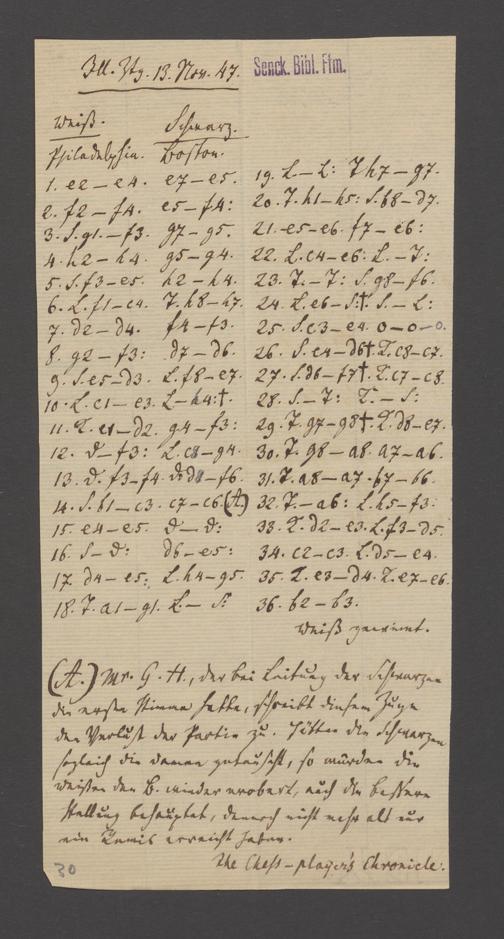 Ill. Ztg. 13. Nov. 47.
Senck. Bibl. Ffm.
Weiß. Schwarz.
Philadelphia. Boston.
1. e2 – e4. e7 – e5.
2. f2 – f4. e5 – f4:
3. S. g1. – f3. g7 – g5.
4. h2 – h4. g5 – g4.
5. S. f3 – e5. h2 – h4.
6. L. f1 – c4. T. h8 – h7.
7. d2 – d4. f4 – f3.
8. g2 – f3: d7 – d6.
9. S. e5 – d3. L. f8 – e7.
10. L. c1 – e3. L – h4:†.
11. K. e1 – d2. g4 – f3:
12. D – f3: L. c8 – g4.
13. D. f3 – f4. D. d8 – f6.
14. S. b1 – c3. c7 – c6. (A)
15. e4 – e5. D – D:
16. S – D: d6 – e5:
17. d4 – e5: L. h4 – g5.
18. T. a1 – g1. L – S:
19. L – L: T h7 – g7.
20. T. h1 – h5: S. b8 – d7.
21. e5 – e6. f7 – e6:
22. L. c4 – e6: L. – T:
23. T. – T: S. g8 – f6.
24. L. e6 – S.†. S. – L:
25. S. c3 – e4. o – o – o.
26. S. e4 – d6†. K. c8 – c7.
27. S. d6 – f7†. K. c7 – c8.
28. S – T: K. – S:
29. T. g7 – g8†. K. d8 – e7.
30. T. g8 – a8. a7 – a6.
31. T. a8 – a7. b7 – b6.
32. T. – a6: L. h5 – f3.
33. K. d2 – e3. L. f3 – d5.
34. c2 – c3. L. d5 – e4.
35. K. e3 – d4. K. e7 – e6.
36. b2 – b3.
Weiß gewinnt.
(A.) Mr. G. H., der bei Leitung der Schwarzen
die erste Stimme hatte, schreibt diesem Zuge
den Verlust der Partie zu. Hätten die Schwarzen
sogleich die Damen getauscht, so würden die
Weißen den B. wieder erobert, auch die bessere
Stellung behauptet, dennoch nicht mehr als nur
ein Remis erreicht haben.
The Chess-player's Chronicle.
30